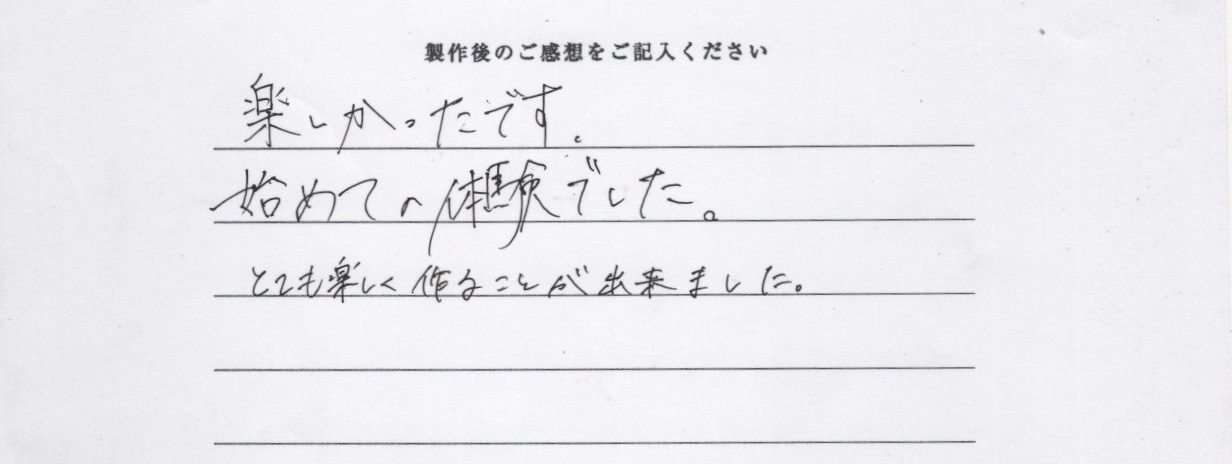 製作後のご感想をご記入ください
楽しかったです。
始めての体験でした。
とても楽しく作ることが出来ました。